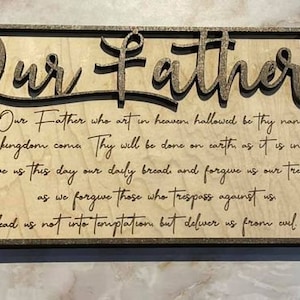 Our Father
Our Father who art in heaven, hallowed be thy nam
kingdom come. Thy will be done on earth, as it is in
ve us this day our daily bread, and forgive us our tre
as we forgive those who trespass against us,
ead us not into temptation, but deliver us from evil.